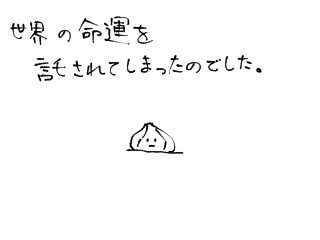 世界の命運を
託されてしまったのでした。